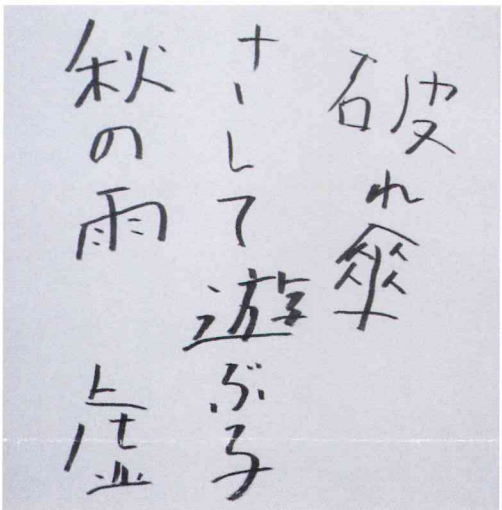 破れ傘
さして遊ぶ子
秋の雨 虚